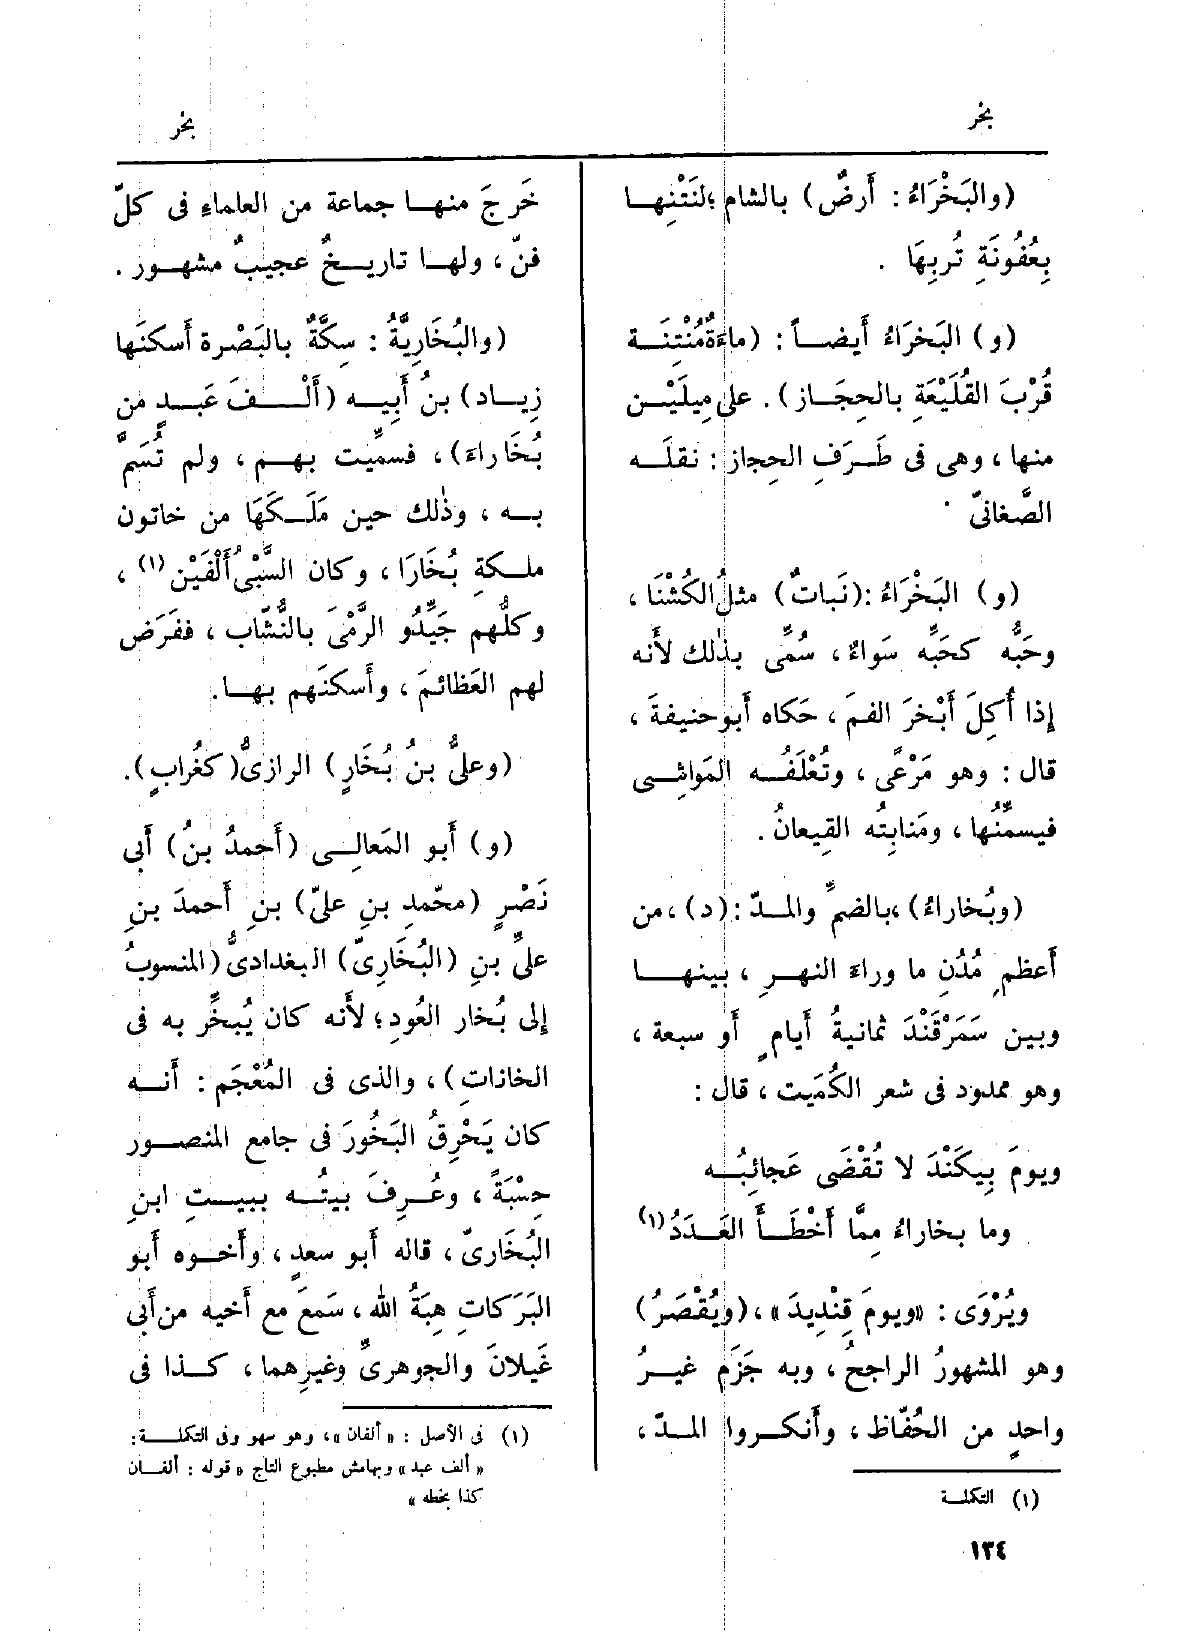 بخر
بخر
(والبَخْرَاءُ : أَرضٌ) بالشام ؛ لنَتْنِها
بِعُفُونَةِ تُربِهَا .
(و) البَخرَاءُ أَيضاً : (ماءَةٌ مُنْتِنَة
قُرْبَ القُلَيْعَةِ بالحِجَاز) . على مِيلَيْن
منها ، وهى فى طَرَفِ الحِجاز : نقلَه
الصَّغانىّ .
(و) البَخْرَاءُ : (نَباتٌ) مثلُ الكُشْنَا ،
وحَبُّه كحَبِّه سَواءٌ ، سُمِّى بذٰلك لأَنه
إِذا أُكِلَ أَبْخرَ الفمَ ، حَكاه أَبو حنيفةَ ،
قال : وهو مَرْعًى ، وتُعْلَفُه المَواشِى
فيسمِّنُها ، ومَنابِتُه القِيعانُ .
(وبُخاراءُ) ، بالضمِّ والمدّ : (د) ، من
أَعظمِ مُدُنِ ما وراءَ النهرِ ، بينها
وبين سَمَرْقَنْدَ ثمانيةُ أَيامٍ أَو سبعة ،
وهو ممدود فى شعر الكُمَيت ، قال :
ويومَ بِيكَنْدَ لا تُقْضَى عَجائِبُه
وما بخاراءُ مِمَّا أَخْطَأَ العَدَدُ (١)
ويُرْوَى : «ويومَ قِنْدِيدَ» ، (ويُقْصَرُ)
وهو المشهورُ الراجحُ ، وبه جَزَم غيرُ
واحدٍ من الحُفّاظ ، وأَنكروا المدّ ،
(١) التكملة
١٣٤
خَرجَ منها جماعة من العلماءِ فى كلّ
فنّ ، ولها تاريخٌ عجيبٌ مشهور .
(والبُخَارِيَّةُ : سِكَّةٌ بالبَصْرة أَسكنَها
زِياد) بنُ أَبِيه (أَلْفَ عَبدٍ من
بُخَاراءَ) ، فسمِّيت بهم ، ولم تُسَمَّ
به ، وذٰلك حين مَلَكَهَا من خاتون
ملكةِ بُخَارَا ، وكان السَّبْىُ أَلْفَيْن (١) ،
وكلُّهم جَيِّدُو الرَّمْىَ بالنُّشّاب ، ففَرَض
لهم العَظائمَ ، وأَسكنَهم بها .
(وعلىُّ بنُ بُخَارٍ) الرازىُّ (كغُرابٍ) .
(و) أَبو المَعالِى (أَحمدُ بنُ) أَبى
نَصْرٍ (محمّدِ بنِ علىّ) بنِ أَحمدَ بنِ
علىِّ بنِ (البُخَارِىّ) البغدادىُّ (المنسوبُ
إِلى بُخار العُودِ ؛ لأَنه كان يُبخِّر به فى
الخاناتِ) ، والذى فى المُعْجَم : أَنه
كان يَحْرِقُ البَخُورَ فى جامع المنصور
حِسْبَةً ، وعُرِفَ بيتُه ببيتِ ابنِ
البُخَارىّ ، قاله أَبو سعدٍ ، وأَخوه أَبو
البَرَكاتِ هِبَةُ الله ، سَمعَ مع أَخيه من أَبى
غَيلانَ والجوهرىِّ وغيرِهما ، كذا فى
(١) فى الأصل : « ألفان » ، وهو سهو وفى التكلة :
« ألف عبد » وبهامش مطبوع التاج « قوله : ألفان
كذا بخطه »